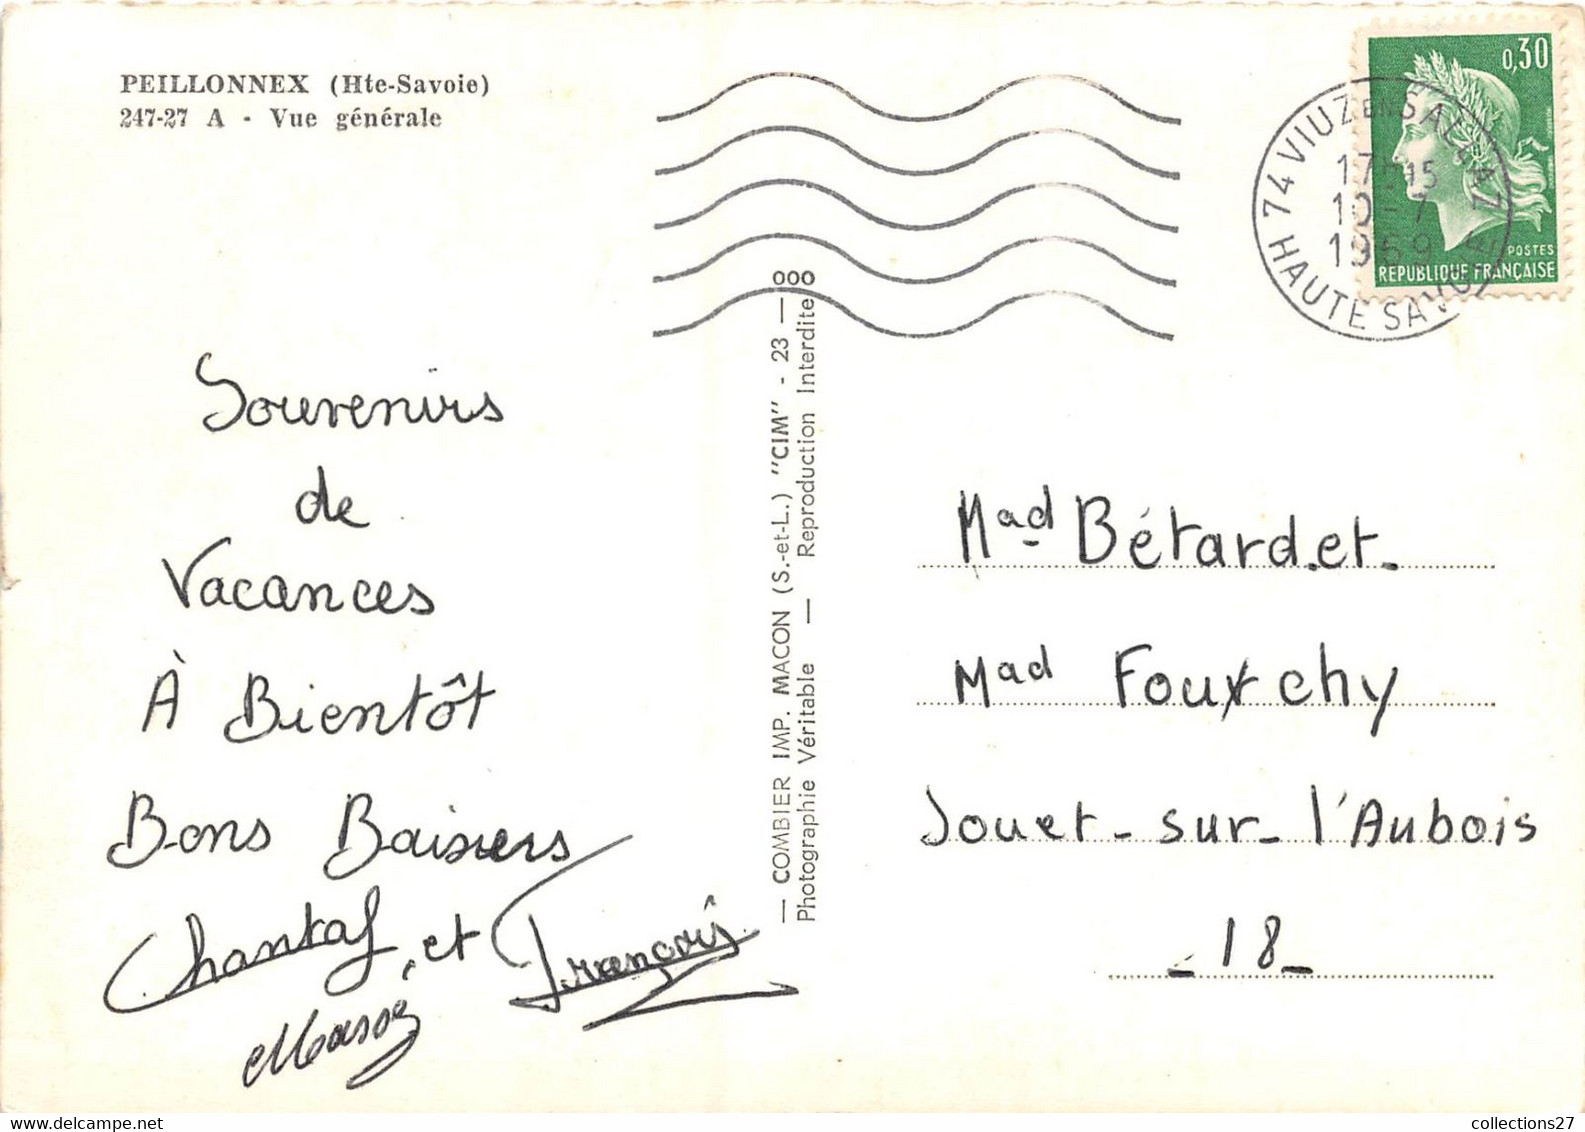 PEILLONNEX (Hte-Savoie)
247-27 A - Vue générale
0,30
POSTES
REPUBLIQUE FRANÇAISE
74 VIUZ EN SALLAZ
17H15
10-7
1969
HAUTE SAVOIE
Souvenirs
de
Vacances
À Bientôt
Bons Baisers
Chantal et François
— COMBIER IMP. MACON (S.-et-L.) "CIM" - 23 — 000
Photographie Véritable — Reproduction Interdite
Mad Bétardet.
Mad Fouchy
Jouet-sur-l'Aubois
-18-
collections27